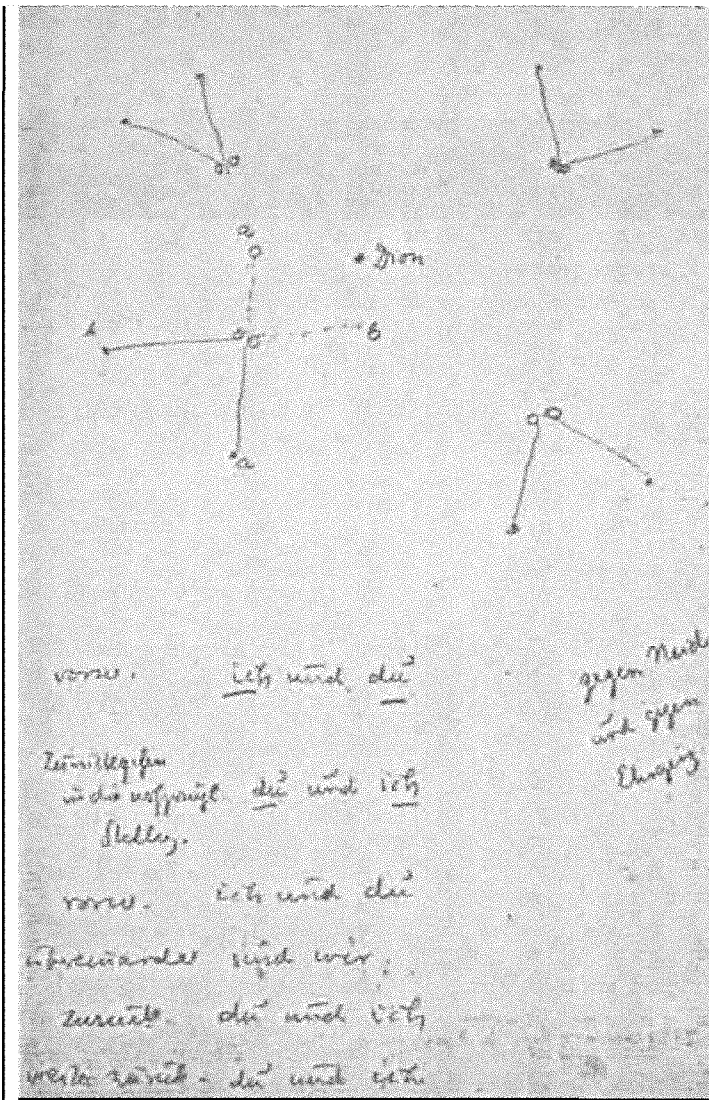 a
Dion
b
b
a
vorw. ich und du
gegen Neid
und gegen
Ehrgeiz
Zurückgehen
in die
du und ich
Stellg.
vorw. ich und du
sind wir.
zurück. du und ich
weiter zurück - du und ich